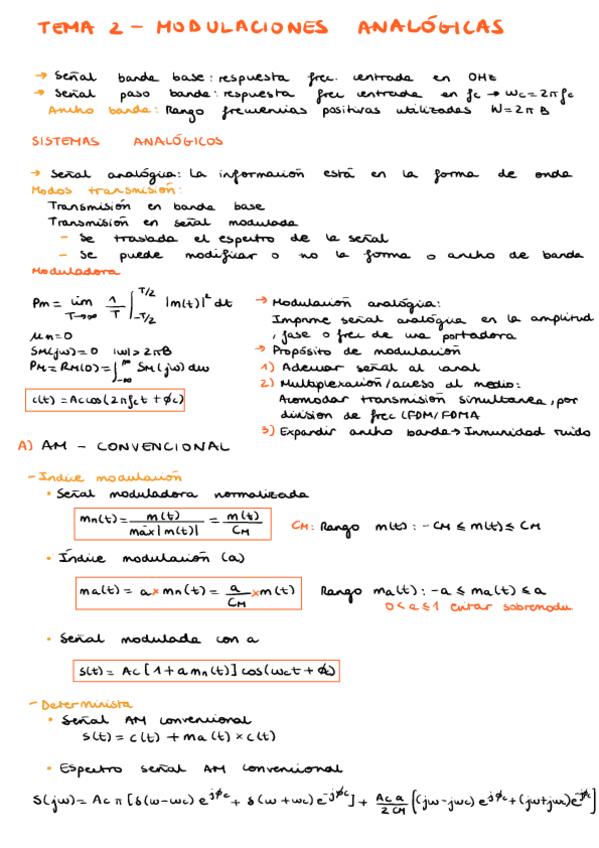 TEMA 2 - MODULACIONES ANALÓGICAS
→ Señal banda base: respuesta frec. centrada en 0Hz
→ Señal paso banda: respuesta frec centrada en fc → wc = 2π fc
Ancho banda: Rango frecuencias positivas utilizadas W = 2π B
SISTEMAS ANALÓGICOS
→ Señal analógica: La información está en la forma de onda
Modos transmisión:
Transmisión en banda base
Transmisión en señal modulada
- Se traslada el espectro de la señal
- Se puede modificar o no la forma o ancho de banda
Moduladora
Pm = lim T→∞ 1/T ∫_{-T/2}^{T/2} |m(t)|² dt
μn = 0
SM(jω) = 0 |ω| > 2πB
PM = RM(0) = ∫_{-∞}^{∞} SM(jω) dω
c(t) = Ac cos(2πfct + ϕc)
→ Modulación analógica:
Imprime señal analógica en la amplitud
, fase o frec de una portadora
→ Propósito de modulación
1) Adecuar señal al canal
2) Multiplexación/acceso al medio:
Acomodar transmisión simultanea, por
division de frec (FDM/FDMA
3) Expandir ancho banda → Inmunidad ruido
A) AM - CONVENCIONAL
- Indice modulación
• Señal moduladora normalizada
mn(t) = m(t)/máx|m(t)| = m(t)/CM
CM: Rango m(t): -CM ≤ m(t) ≤ CM
• Índice modulación (a)
ma(t) = a × mn(t) = a/CM × m(t)
Rango ma(t): -a ≤ ma(t) ≤ a
0 < a ≤ 1 evitar sobremodu.
• Señal modulada con a
s(t) = Ac [1 + a mn(t)] cos(ωct + ϕc)
- Determinista
• Señal AM convencional
s(t) = c(t) + ma(t) × c(t)
• Espectro señal AM convencional
S(jω) = Ac π [δ(ω-ωc) e^{jϕc} + δ(ω+ωc) e^{-jϕc}] + Ac a/2CM [(jω-jωc) e^{jϕc} + (jω+jωc) e^{-jϕc}]